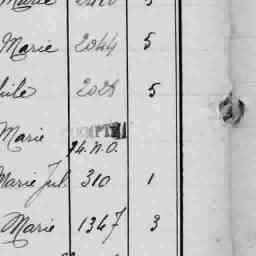 Marie 2044 5
2028 5
Marie
24.N.O.
Marie Jul. 310 1
Marie 1347 3